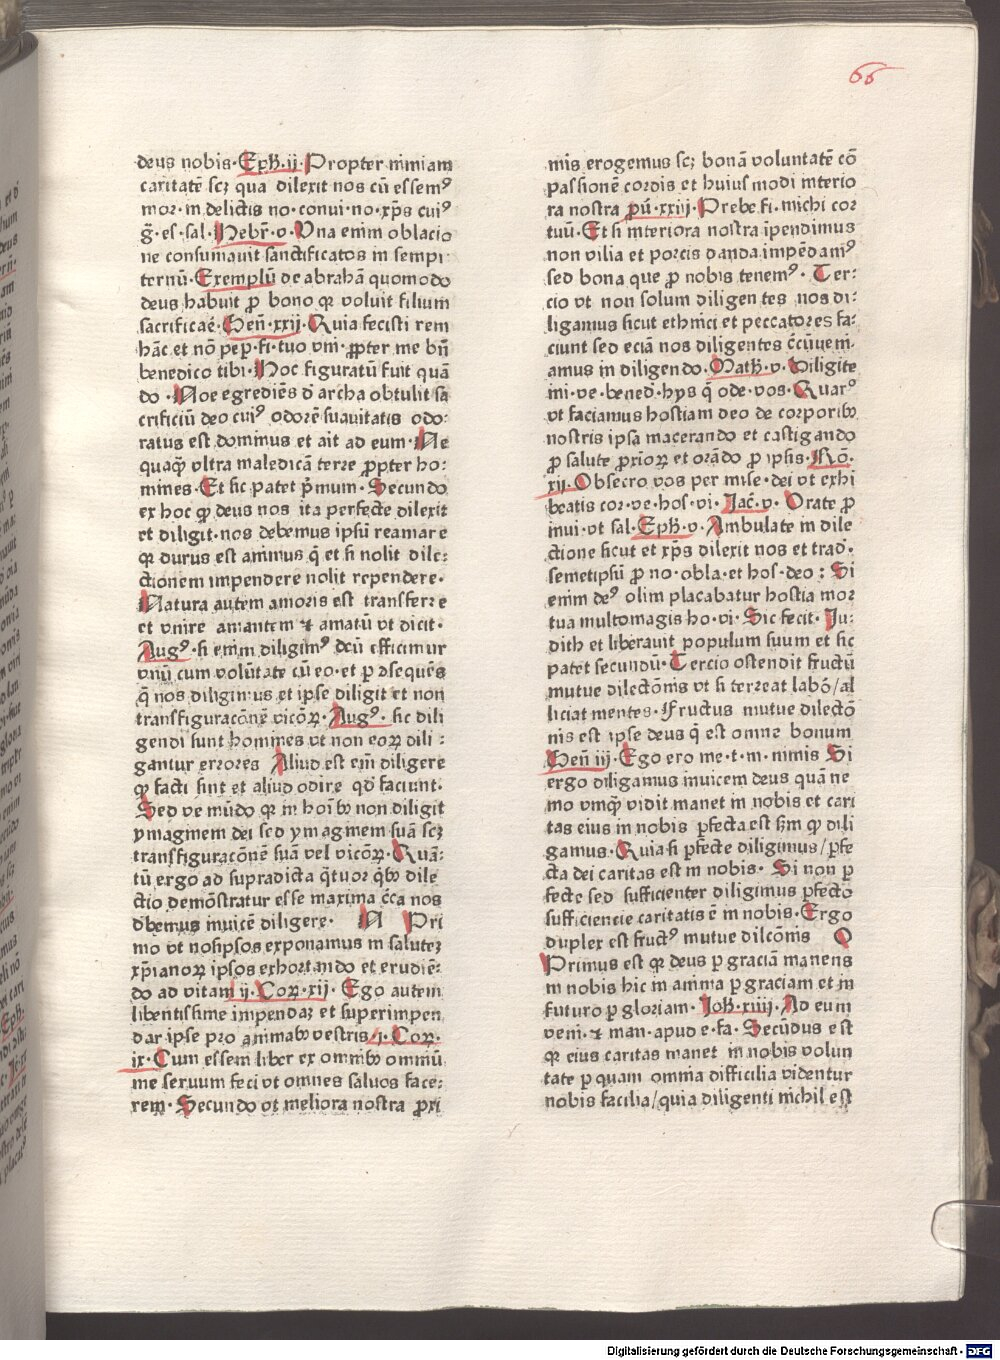 66
deus nobis·Eph̄·ij·Propter nimiam
caritatē scꝫ qua dilexit nos cū essemꝰ
mor·in delictis no·conui·no·xp̄s cuiꝰ
g̃·es·sal·Hebr̄·v·Vna enim oblacio
ne consumauit sanctificatos in sempi
ternū·Exemplū de abrahā quomodo
deus habuit ꝓ bono qꝛ voluit filium
sacrificaē·Gen̄·xxij·Quia fecisti rem
hāc et nō pep·fi·tuo vni·ꝓpter me bn̄
benedico tibi·Hoc figuratū fuit quā
do·Noe egrediēs d̄ archa obtulit sa
crificiū deo cuiꝰ odorē suauitatis odo:
ratus est dominus et ait ad eum·Ne
quaq̄ vltra maledicā terre ꝓpter ho:
mines·Et sic patet p̄mum·Secundo
ex hoc ꝙ deus nos ita perfecte dilexit
et diligit·nos debemus ipsū reamare
qꝛ durus est animus q̄ et si nolit dile:
ctionem impendere nolit rependere·
Natura autem amoris est transferre
et vnire amantem ⁊ amatū vt dicit·
Augꝰ·si enim diligimꝰ deū efficimur
vnū cum volūtate cū eo·et ꝑ ꝯsequēs
q̄ nos diligimus et ipse diligit et non
transfiguracōnē vicōꝝ·Augꝰ·sic dili
gendi sunt homines vt non eoꝝ dili:
gantur errores Aliud est em̄ diligere
ꝙ facti sint et aliud odire qd̄ faciunt·
Sed ve mūdo qꝛ in hoībꝰ non diligit
ymaginem dei sed ymaginem suā scꝫ
transfiguracōnē suā vel vicōꝝ·Quā:
tū ergo ad supradicta q̄tuor q̄bꝰ dile
ctio demōstratur esse maxima c̄ca nos
d̄bemus inuicē diligere· N Pri
mo vt nosipsos exponamus in salutez
xp̄ianoꝝ ipsos exhortando et erudiē:
do ad vitam ij·Coꝝ·xij·Ego autem
libentissime impendaꝫ et superimpen
dar ipse pro animabꝰ vestris·j·Coꝝ·
ix·Cum essem liber ex omnibꝰ omniū
me seruum feci vt omnes saluos face:
rem·Secundo vt meliora nostra ꝓxi
mis erogemus scꝫ bonā voluntatē cō
passionē cordis et huiusmodi interio
ra nostra ꝓū·xxiij·Prebe·fi·michi cor
tuū·Et si interiora nostra ipendimus
non vilia et porcis danda impēdamꝰ
sed bona que ꝓ nobis tenemꝰ·Ter:
cio vt non solum diligentes nos di:
ligamus sicut ethnici et peccatores fa:
ciunt sed eciā nos diligentes c̄cūueni·
amus in diligendo·Math̄·v·Diligite
ini·ve·bened·hys q̄ ode·vos·Quarꝰ
vt faciamus hostiam deo de corporibꝰ
nostris ipsa macerando et castigando
ꝓ salute ꝓxioꝝ et orādo ꝓ ipsis·Rō·
xij·Obsecro vos per mise·dei vt exhi
beatis cor·ve·hos·vi·Jac̄·v·Orate ꝓ
inui·vt sal·Eph̄·v·Ambulate in dile
ctione sicut et xp̄s dilexit nos et trad·
semetipsū ꝓ no·obla·et hos·deo:Si
enim deꝰ olim placabatur hostia mor
tua multomagis ho·vi·Sic fecit·Ju:
dith et liberauit populum suum et sic
patet secundū·Tercio ostendit fructū
mutue dilectōnis vt si terreat labō/al
liciat mentes·Fructus mutue dilectō
nis est ipse deus q̄ est omne bonum
Gen̄ iij·Ego ero me·t·m·nimis Si
ergo diligamus inuicem deus quā ne
mo vmq̄ vidit manet in nobis et cari
tas eius in nobis ꝑfecta est s̄m ꝙ dili
gamus·Quia si ꝑfecte diligimus/ꝑfe
cta dei caritas est in nobis·Si non ꝑ
fecte sed sufficienter diligimus ꝑfecto
sufficiencie caritatis ē in nobis·Ergo
duplex est fructꝰ mutue dilcōnis O
Primus est qꝛ deus ꝑ graciā manens
in nobis hic in anima ꝑ graciam et in
futuro ꝑ gloriam·Joh̄·xiiij·Ad eum
veni·⁊ man·apud e·fa·Secūdus est
qꝛ eius caritas manet in nobis volun
tate ꝑ quam omnia difficilia videntur
nobis facilia/quia diligenti nichil est
Digitalisierung gefördert durch die Deutsche Forschungsgemeinschaft - DFG